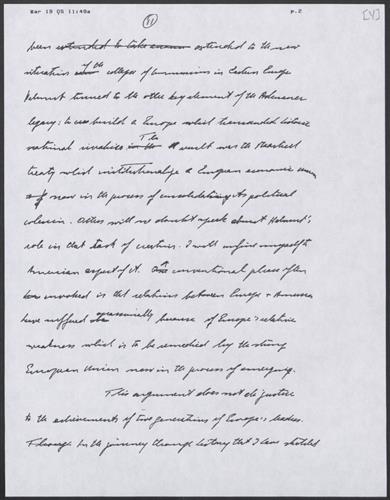 Mar 19 05 11:48a p.2
11
[4]
been extended to the new
situation of the collapse of communism in Eastern Europe
Helmut turned to the other key element of the Adenauer
legacy: to build a Europe which transcended historic
national rivalries. The result was the Maastricht
treaty which institutionalize a European economic union
now in the process of consolidating its political
cohesion. Others will no doubt speak about Helmut's
role in that task of creation. I will confine myself to
American aspect of it. A conventional phrase often
invoked is that relations between Europe + America
have suffered because of Europe's relative
weakness which is to be remedied by the strong
European Union now in the process of emerging.
This argument does not do justice
to the achievements of two generations of Europe's leaders.
in the journey through history that I have sketched